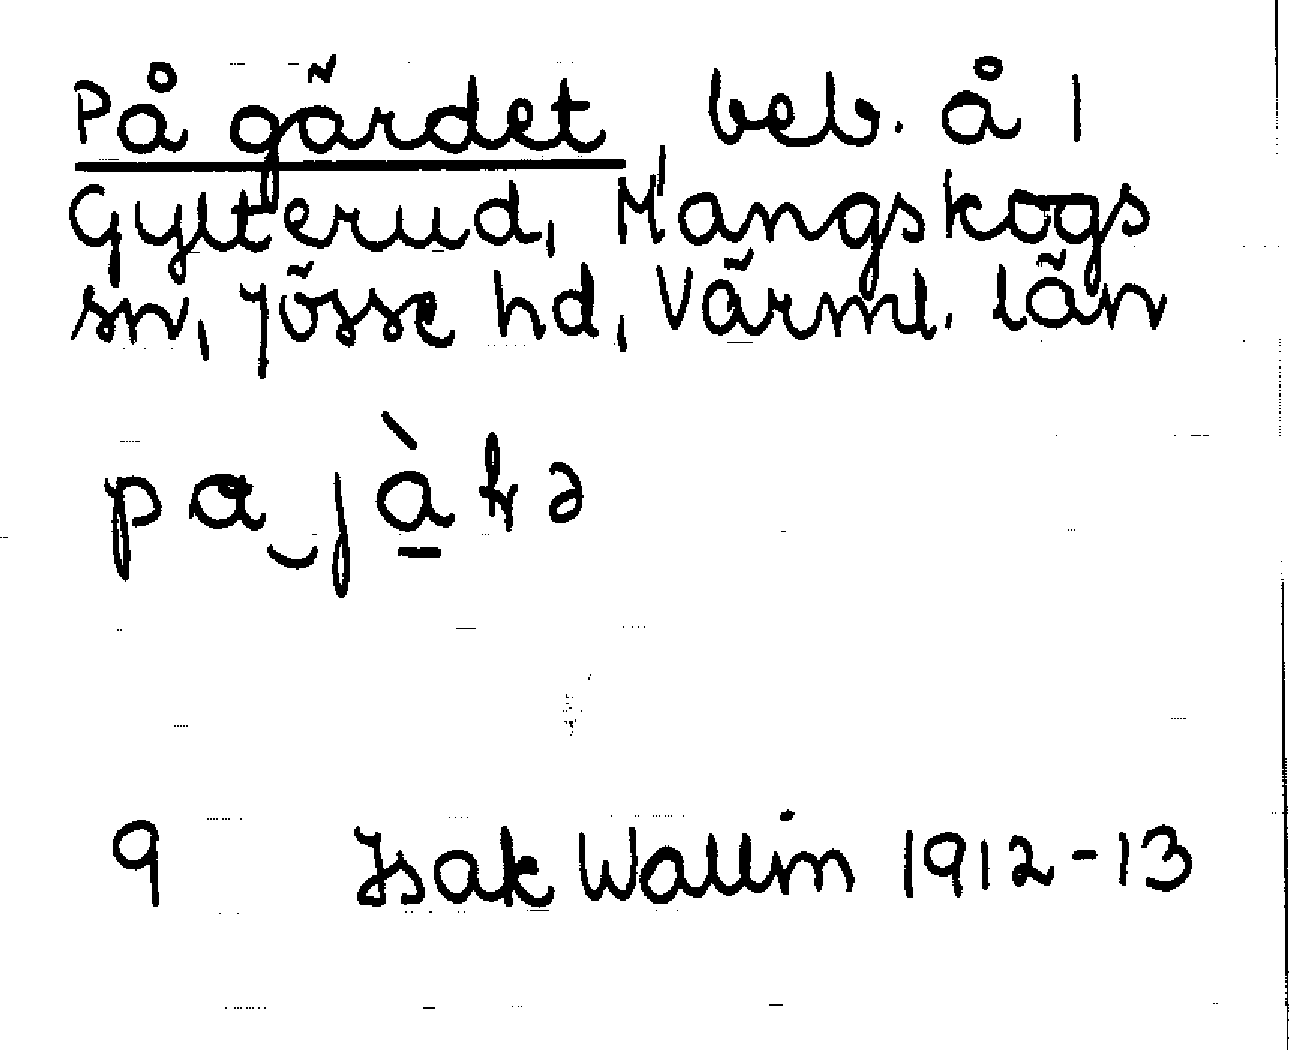 På gärdet, beb. å 1
Gylterud, Mangskogs
sn, Jösse hd, Värml. län
9 Isak Wallin 1912-13